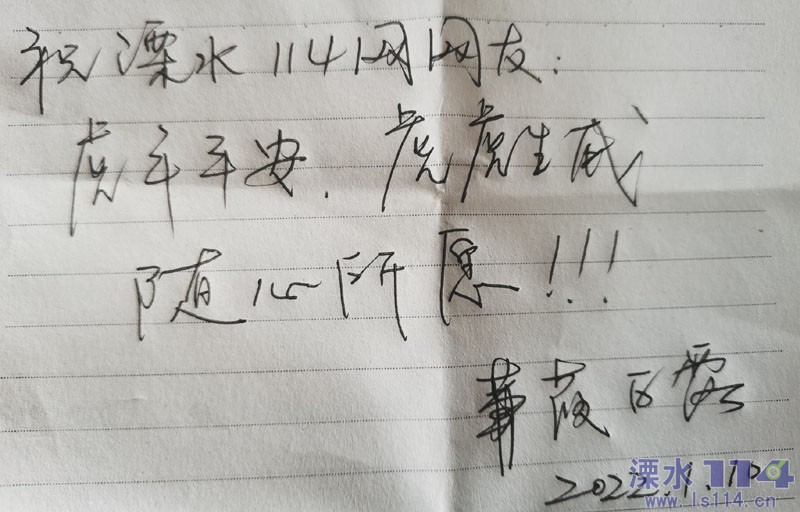 祝溧水114网网友:
虎年平安.虎虎生威
随心所愿!!!
蒹葭白露
2022.1.10
溧水114
www.ls114.cn